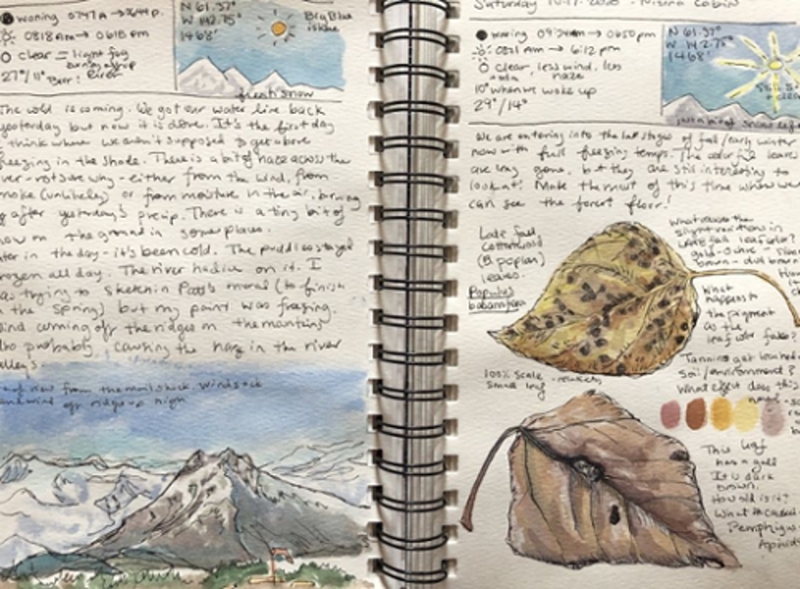 waning 0747A → 
0818 AM → 0618 pm
clear = light fog
27°/11° Burr! River
N 61.37°
W 142.75°
1468'
Big Blue
fresh snow
The cold is coming. We got our water line back
yesterday but now it is done. It's the first day
I think where we aren't supposed to get above
freezing in the shade. There is a bit of haze across the
river - not sure why - either from the wind, from
smoke (unlikely) or from moisture in the air, 
after yesterday's precip. There is a tiny bit of
snow on the ground in some places.
later in the day - it's been cold. The puddles stayed
frozen all day. The river had ice on it. I
was trying to sketch in mural (to finish
in the spring) but my paint was freezing.
Wind coming off the ridges on the mountains
also probably causing the haze in the river
valley.
view from the windsock
and wind off ridge up high
Saturday 10.17.2020 - Nizina Cabin
waning 09 → 0650 pm
0821 Am → 6:12 pm
clear, less wind, less
haze
10° when we woke up
29°/14°
N 61.37°
W 142.75°
1468'
We are entering into the last stages of fall/early winter
now with full freezing temps. The colorful leaves
are long gone, but they are still interesting to
look at! Make the most of this time when we
can see the forest floor!
Late fall
cottonwood
(B. poplar)
leaves
Populus
balsamifera
100% scale
small leaf
What causes the
slight variations in
late fall leaf color?
What
happens to
the pigment
as the
leaf color fades?
Tannins get leached
soil/environment?
What effect does this
This leaf
has a gall
It is dark
brown.
How old is it?
What caused
Pemphigus
Aphid